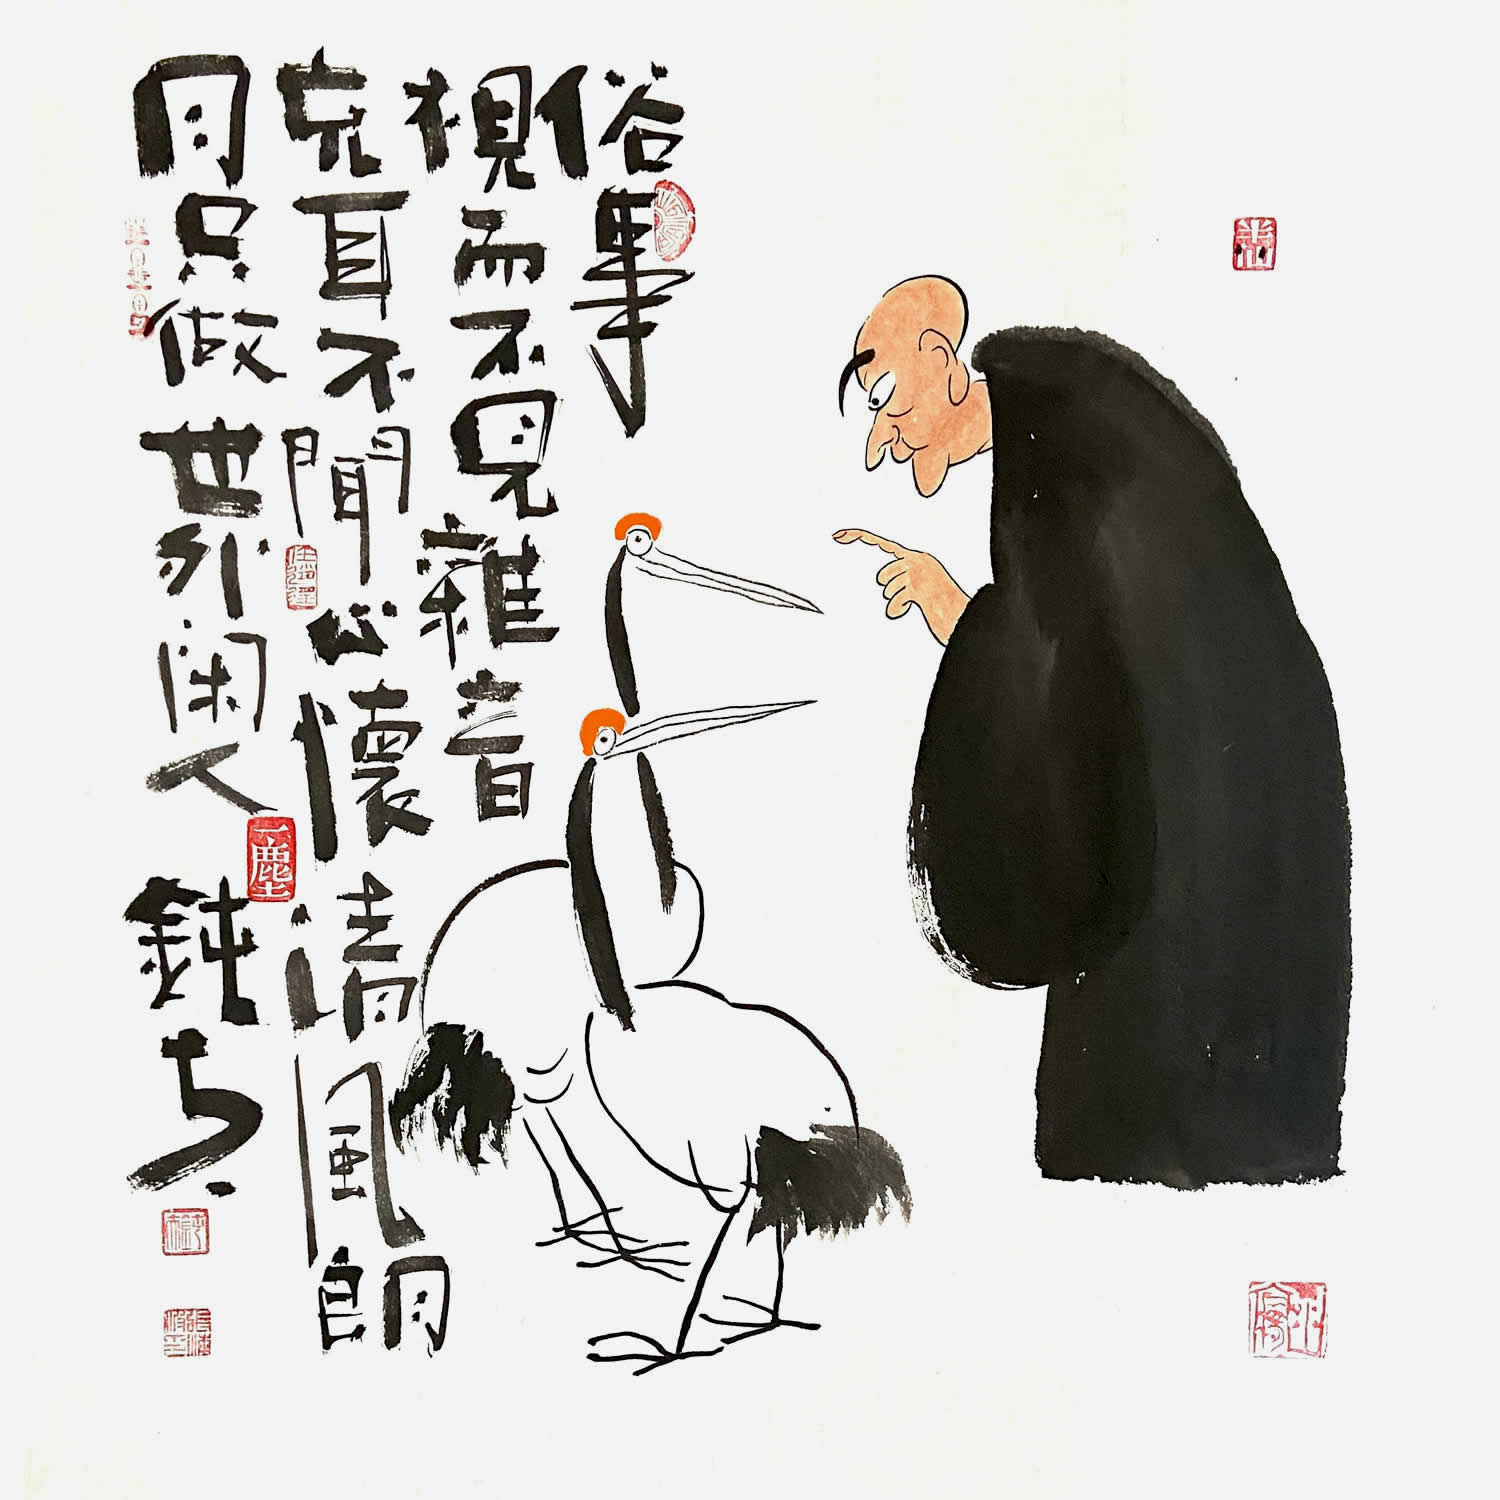 俗事
視而不見雜音
充耳不聞心懷清風朗
月只做世外闲人 鈍夫
一塵